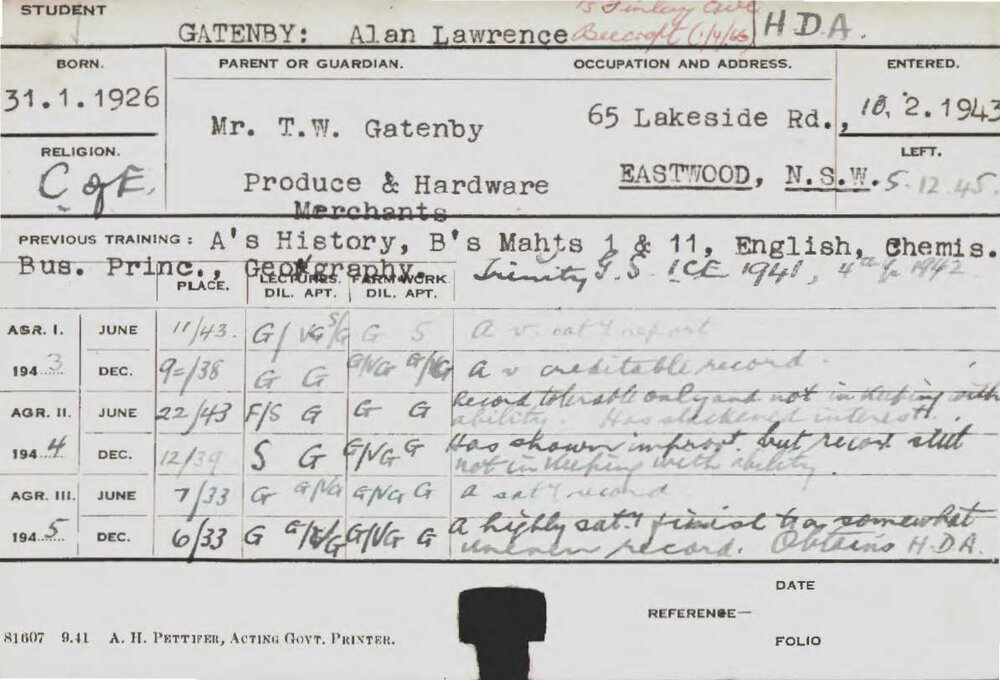 STUDENT
GATENBY: Alan Lawrence 15 Finlay Ave H.D.A.
Beecroft (1/4/66)
BORN. PARENT OR GUARDIAN. OCCUPATION AND ADDRESS. ENTERED.
31.1.1926 Mr. T.W. Gatenby 65 Lakeside Rd., 10.2.1943
RELIGION. LEFT.
C of E. Produce & Hardware EASTWOOD, N.S.W. 5.12.45
Merchants
PREVIOUS TRAINING: A's History, B's Mahts 1 & 11, English, Chemis.
Bus. Princ., Geography. Trinity G.S. ICE 1941, 4th Yr 1942
PLACE. LECTURES. FARM WORK.
DIL. APT. DIL. APT.
AGR. I. JUNE 11/43. G/VG S/G G S A v. sat'y report
194 3 DEC. 9=/38 G G G/VG G/VG A v creditable record.
AGR. II. JUNE 22/43 F/S G G G Record tolerable only and not in keeping with
ability. Has slackened interest.
194 4 DEC. 12/39 S G G/VG G Has shown improvt. but record still
not in keeping with ability.
AGR. III. JUNE 7/33 G G/VG G/VG G A sat'y record
194 5 DEC. 6/33 G G/VG G A highly sat'y finish to a somewhat
uneven record. Obtains H.D.A.
DATE
REFERENCE—
81607 9.41 A. H. PETTIFER, ACTING GOVT. PRINTER. FOLIO